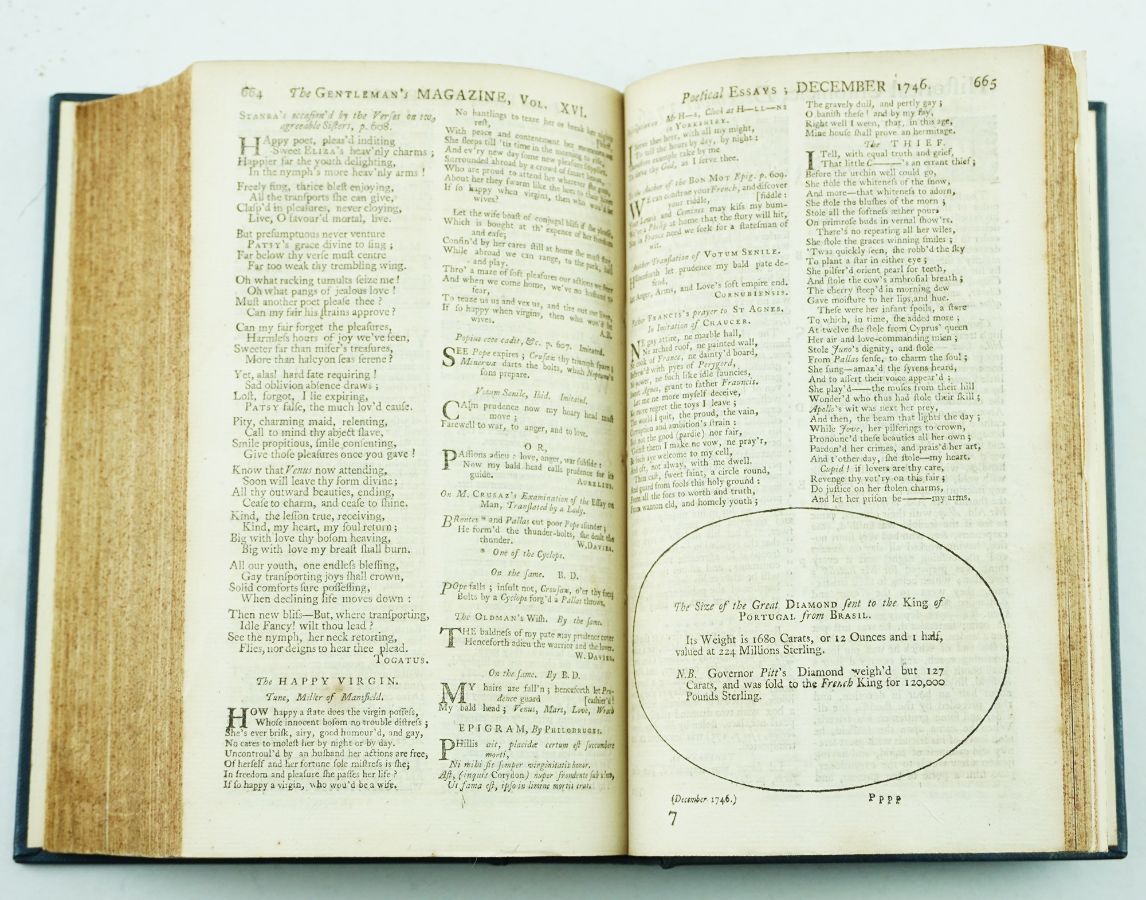 664 The GENTLEMAN's MAGAZINE, VOL. XVI.
STANZA's occasion'd by the Verses on two
agreeable Sisters, p. 608.
HAppy poet, pleas'd inditing
Sweet ELIZA's heav'nly charms;
Happier far the youth delighting,
In the nymph's more heav'nly arms!
Freely sing, thrice blest enjoying,
All the transports she can give,
Clasp'd in pleasures, never cloying,
Live, O favour'd mortal, live.
But presumptuous never venture
PATSY's grace divine to sing;
Far below thy verse must centre
Far too weak thy trembling wing.
Oh what racking tumults seize me!
Oh what pangs of jealous love!
Must another poet please thee?
Can my fair his strains approve?
Can my fair forget the pleasures,
Harmless hours of joy we've seen,
Sweeter far than miser's treasures,
More than halcyon seas serene?
Yet, alas! hard fate requiring!
Sad oblivion absence draws;
Lost, forgot, I lie expiring,
PATSY false, the much lov'd cause.
Pity, charming maid, relenting,
Call to mind thy abject slave,
Smile propitious, smile consenting,
Give those pleasures once you gave!
Know that Venus now attending,
Soon will leave thy form divine;
All thy outward beauties, ending,
Cease to charm, and cease to shine.
Kind, the lesson true, receiving,
Kind, my heart, my soul return;
Big with love thy bosom heaving,
Big with love my breast shall burn.
All our youth, one endless blessing,
Gay transporting joys shall crown,
Solid comforts sure possessing,
When declining life moves down:
Then new bliss—But, where transporting,
Idle Fancy! wilt thou lead?
See the nymph, her neck retorting,
Flies, nor deigns to hear thee plead.
TOGATUS.
The HAPPY VIRGIN.
Tune, Miller of Mansfield.
HOW happy a state does the virgin possess,
Whose innocent bosom no trouble distress;
She's ever brisk, airy, good humour'd, and gay,
No cares to molest her by night or by day.
Uncontroul'd by an husband her actions are free,
Of herself and her fortune sole mistress is she;
In freedom and pleasure she passes her life?
If so happy a virgin, who wou'd be a wife.
No bantlings to tease her or break her nightly
rest,
With peace and contentment her
She sleeps till 'tis time in the morning to rise,
And ev'ry new day some new pleasures supplies.
Surrounded abroad by a crowd of smart beaus,
Who are proud to attend her wherever she goes,
About her they swarm like the bees to their hives
If so happy when virgins, then who wou'd be
wives?
Let the wife boast of conjugal bliss if she please,
Which is bought at th' expence of her freedom
and ease;
Confin'd by her cares still at home she must stay,
While abroad we can range, to the park,
and play.
Thro' a maze of soft pleasures our actions we steer
And when we come home, we've no husband to
fear,
To tease us and vex us, and tire out our lives,
If so happy when virgins, then who wou'd be
wives.
A.B.
Popius ecce cadit, &c. p. 607. Imitated.
SEE Pope expires; Crusax thy triumph spare;
Minerva darts the bolts, which Neptune's
sons prepare.
Votum Senile, Ibid. Imitated.
CAlm prudence now my hoary head must
move;
Farewell to war, to anger, and to love.
OR,
PAssions adieu: love, anger, war subside:
Now my bald head calls prudence for its
guide.
AURELIUS.
On M. CRUSAZ's Examination of the Essay on
Man, Translated by a Lady.
BRontes * and Pallas cut poor Pope asunder;
He form'd the thunder-bolts, she dealt the
thunder.
W.DAVIES.
* One of the Cyclops.
On the same. B. D.
POpe falls; insult not, Crousax, o'er thy
Bolts by a Cyclops forg'd a Pallas thrown.
The OLDMAN's Wish. By the same.
THE baldness of my pate may prudence cover
Henceforth adieu the warrior and the lover.
W. DAVIES.
On the same. By B. D.
MY hairs are fall'n; henceforth let Pru-
dence guard [cashier'd!
My bald head; Venus, Mars, Love, Wrath
EPIGRAM, By PHILORUGES.
PHillis ait, placidæ certum est succumbere
morti,
Ni mihi sit semper virginitatis honor.
Ast, (inquit Corydon) nuper frondente sub ulmo,
Ut fama est, ipso in limine mortis eras.
Poetical ESSAYS; DECEMBER 1746. 665
Mr H—s, Clerk at H—LL—NS
in YORKSHIRE.
I serve then here, with all my might,
To tell the hours by day, by night:
example take by me
To serve thy God, as I serve thee.
Author of the BON MOT Epig. p. 609.
WE can construe your French, and discover
your riddle, [fiddle:
and Comines may kiss my bum-
Philip at home that the story will hit,
in France need we seek for a statesman of
wit.
Another Translation of VOTUM SENILE.
HEnceforth let prudence my bald pate de-
fend,
Anger, Arms, and Love's soft empire end.
CORNUBIENSIS.
FRANCIS's prayer to ST AGNES.
In Imitation of CHAUCER.
NE gay attire, ne marble hall,
Ne arched roof, ne painted wall,
Ne cook of France, ne dainty'd board,
with pyes of Perygord,
Ne power, ne such like idle fauncies,
Agnes, grant to father Frauncis.
Let me ne more myself deceive,
Ne more regret the toys I leave;
The world I quit, the proud, the vain,
Corruption and ambition's strain:
But not the good (pardie) nor fair,
'Gainst them I make ne vow, ne pray'r,
But such aye welcome to my cell,
And oft, not alway, with me dwell.
Then cast, sweet saint, a circle round,
And guard from fools this holy ground:
From all the foes to worth and truth,
From wanton eld, and homely youth;
The gravely dull, and pertly gay;
O banish these! and by my fay,
Right well I ween, that, in this age,
Mine house shall prove an hermitage.
The THIEF.
I Tell, with equal truth and grief,
That little C———'s an errant thief;
Before the urchin well could go,
She stole the whiteness of the snow,
And more—that whiteness to adorn,
She stole the blushes of the morn;
Stole all the softness æther pours
On primrose buds in vernal show'rs.
There's no repeating all her wiles,
She stole the graces winning smiles;
'Twas quickly seen, she robb'd the sky
To plant a star in either eye;
She pilfer'd orient pearl for teeth,
And stole the cow's ambrosial breath;
The cherry steep'd in morning dew
Gave moisture to her lips and hue.
These were her infant spoils, a store
To which, in time, she added more;
At twelve she stole from Cyprus' queen
Her air and love-commanding mien;
Stole Juno's dignity, and stole
From Pallas sense, to charm the soul;
She sung—amaz'd the syrens heard,
And to assert their voice appear'd;
She play'd——the muses from their hill
Wonder'd who thus had stole their skill;
Apollo's wit was next her prey,
And then, the beam that lights the day;
While Jove, her pilferings to crown,
Pronounc'd these beauties all her own;
Pardon'd her crimes, and prais'd her art,
And t'other day, she stole—my heart.
Cupid! if lovers are thy care,
Revenge thy vot'ry on this fair;
Do justice on her stolen charms,
And let her prison be———my arms.
The Size of the Great DIAMOND sent to the King of
PORTUGAL from BRASIL.
Its Weight is 1680 Carats, or 12 Ounces and 1 half,
valued at 224 Millions Sterling.
N.B. Governor Pitt's Diamond weigh'd but 127
Carats, and was sold to the French King for 120,000
Pounds Sterling.
(December 1746.) Pppp
7